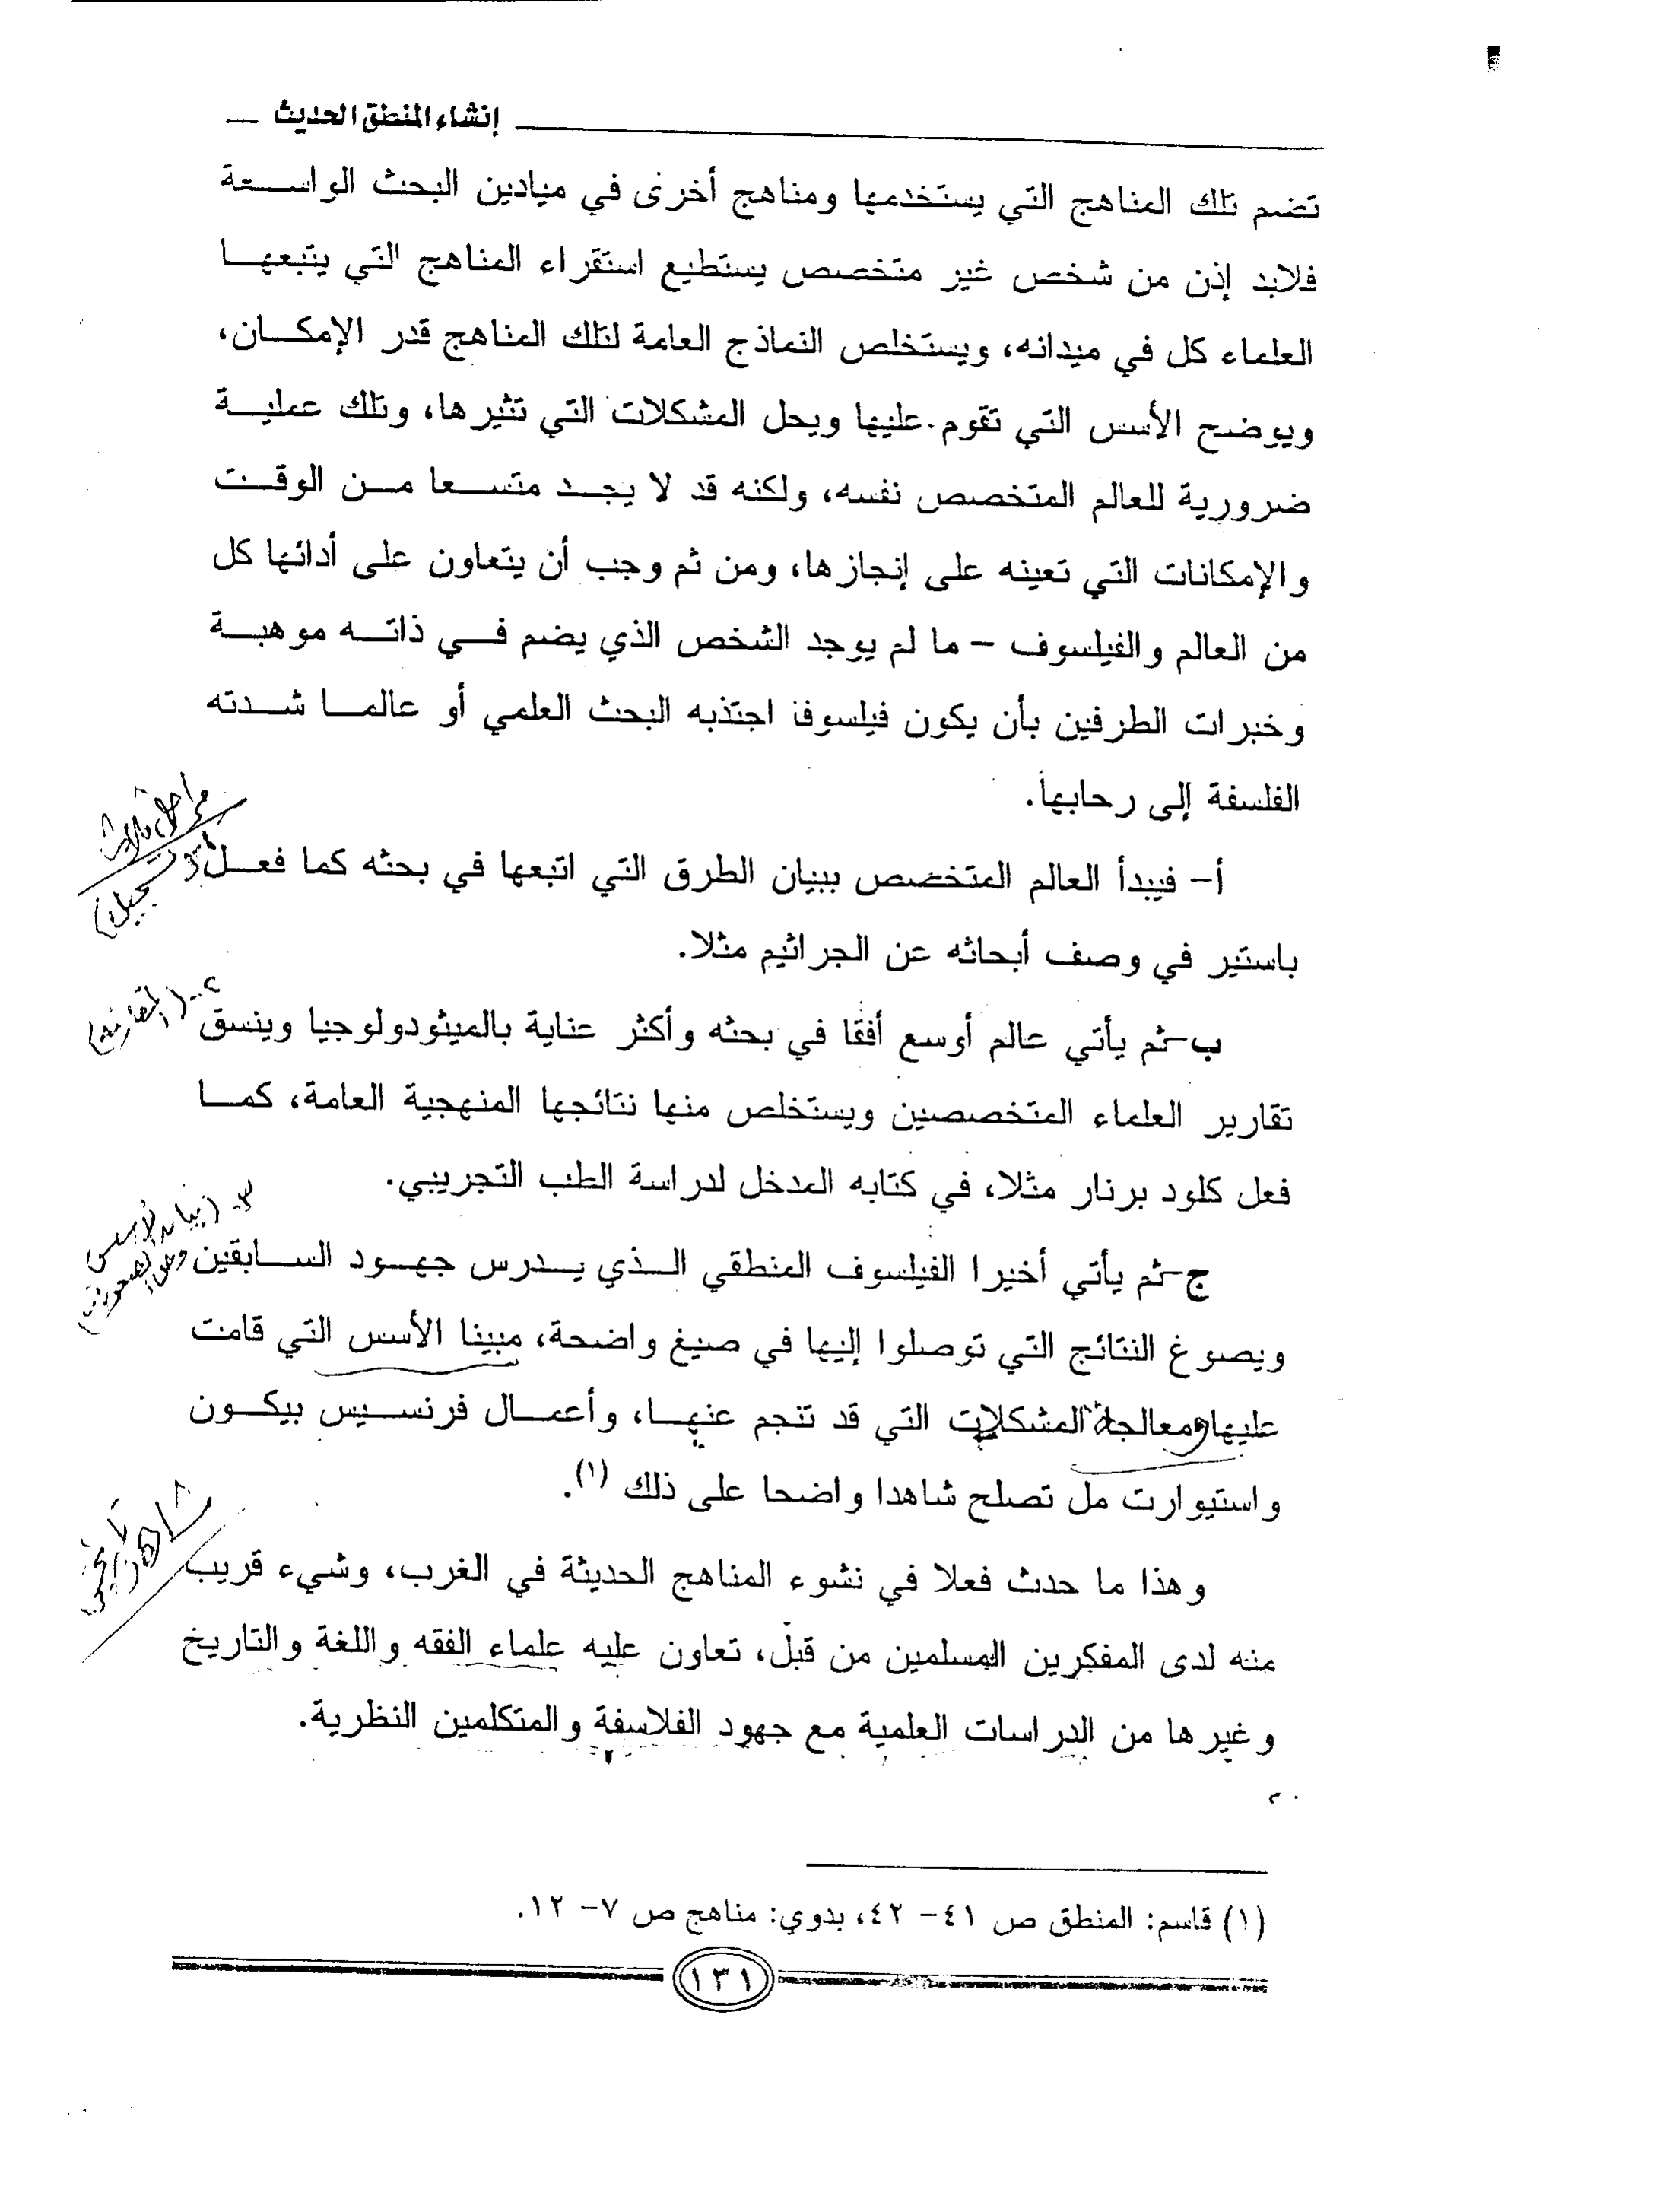 إنشاء المنطق الحديث
تضم تلك المناهج التي يستخدمها ومناهج أخرى في ميادين البحث الواسعة
فلابد إذن من شخص غير متخصص يستطيع استقراء المناهج التي يتبعها
العلماء كل في ميدانه، ويستخلص النماذج العامة لتلك المناهج قدر الإمكان،
ويوضح الأسس التي تقوم عليها ويحل المشكلات التي تثيرها، وتلك عملية
ضرورية للعالم المتخصص نفسه، ولكنه قد لا يجد متسعا من الوقت
والإمكانات التي تعينه على إنجازها، ومن ثم وجب أن يتعاون على أدائها كل
من العالم والفيلسوف – ما لم يوجد الشخص الذي يضم في ذاته موهبة
وخبرات الطرفين بأن يكون فيلسوفا اجتذبه البحث العلمي أو عالما شدته
الفلسفة إلى رحابها.
مراحل ثلاث
أ– فيبدأ العالم المتخصص ببيان الطرق التي اتبعها في بحثه كما فعل
باستير في وصف أبحاثه عن الجراثيم مثلا.
٢- (المقارنة)
ب–ثم يأتي عالم أوسع أفقا في بحثه وأكثر عناية بالميثودولوجيا وينسق
تقارير العلماء المتخصصين ويستخلص منها نتائجها المنهجية العامة، كما
فعل كلود برنار مثلا، في كتابه المدخل لدراسة الطب التجريبي.
٣- (بيان الأسس
ج–ثم يأتي أخيرا الفيلسوف المنطقي الذي يدرس جهود السابقين
ويصوغ النتائج التي توصلوا إليها في صيغ واضحة، مبينا الأسس التي قامت
عليها ومعالجة المشكلات التي قد تنجم عنها، وأعمال فرنسيس بيكون
واستيوارت مل تصلح شاهدا واضحا على ذلك (١).
وهذا ما حدث فعلا في نشوء المناهج الحديثة في الغرب، وشيء قريب
منه لدى المفكرين المسلمين من قبل، تعاون عليه علماء الفقه واللغة والتاريخ
وغيرها من الدراسات العلمية مع جهود الفلاسفة والمتكلمين النظرية.
(١) قاسم: المنطق ص ٤١– ٤٢، بدوي: مناهج ص ٧– ١٢.
١٣١